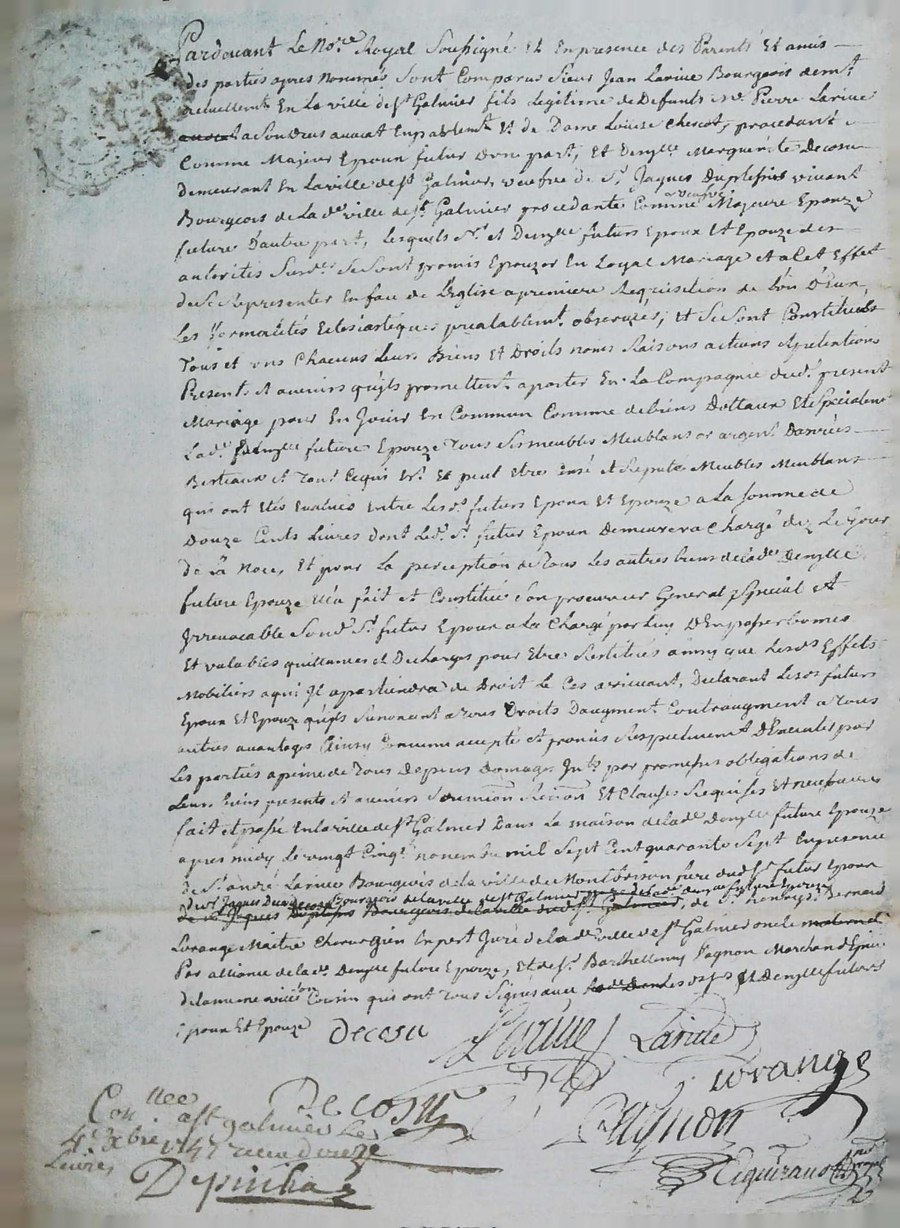 Pardevant Le No.re Royal Soussigné Et En presence des Parents Et amis
des parties apres nommés Sont Comparus Sieur Jean Larive Bourgeois dem.t
actuellem.t En La ville de S.t Galmier fils Legitime de Defunts Pierre Larive
avocat En parlem.t Et de Dame Loüise procedant
Comme Majeur Epoux futur Dune part, Et Demzlle Marguerite Decosu
demeurant En La ville de S.t Galmier, veufve de S.r Jaques Duplessis vivant
Bourgeois de La d.e ville de S.t Galmier procedante Comme veufve Majeure Epouze
future Dautre part, Lesquels S.r Et Demzlle futurs Epoux Et Epouze des
autorités Susd. Se Sont promis Epouzer En Loyal Mariage Et a Cet Effet
de Se Representer En face de LEglise a premiere Requisition de Lun DEux,
Les formalités Eclesiastiques prealablem.t observées, Et Se Sont Constitués
Tous Et uns Chacuns Leurs Biens Et Droits noms Raisons actions Repetitions
Presents Et avenirs quils promettent aporter En La Compagnie dud. present
Mariage pour En Joüir En Commun Comme de biens Dottaux Et Specialem.t
La d.e Demzlle future Epouze Tous Ses meubles Meublans or argent Danrées
Bestiaux Et Tout Ce qui Est Et peut Etre Censé Et Reputé Meubles Meublans
qui ont Etés Evalués Entre Lesd. futurs Epoux Et Epouze a La Somme de
Douze Cents Livres dont Led. S.r futur Epoux Demeurera Chargé dez Le Jour
de La Noce, Et pour La perception de Tous Les autres biens de La d.e Demzlle
future Epouze Elle a fait Et Constitué Son procureur General Special Et
Irrevocable Sond. S.r futur Epoux a La Charge par Luy DEn passer bonnes
Et valables quittances Et Decharges pour Etre Restitués ainsy que Lesd. Effets
Mobiliers a qui Il apartiendra de Droit Le Cas arrivant, Declarant Lesd. futurs
Epoux Et Epouze quils Renoncent a Tous Droits Daugment Contraugment a Tous
autres avantages Ainsy Convenu accepté Et promis Respectivement DExecuter par
Les parties a peine de Tous Depens Domages Int.s par promesses obligations de
Leurs biens presents Et avenirs Soumission Renon Et Clauses Requises Et necessaires
fait et passé En La ville de S.t Galmier Dans La maison de La d.e Demzlle future Epouze
apres midy Le vingt Cinq.e novembre mil Sept Cent quarante Sept En presence
de S.r andré Larive Bourgeois de La ville de Montbrison frere dud. S.r futur Epoux
de S.r Jaques Decosu Bourgeois de La ville de S.t Galmier de La d.e Demzlle future Epouze
de S.r Jaques Duplessis Bourgeois de La ville dud. S.t Galmier, de S.r Bernard
Lorange Maitre Chirurgien Expert Juré de La d.e ville de S.t Galmier oncle maternel
Par alliance de La d.e Demzlle future Epouze, Et de S.r Barthellemy Pagnon Marchand
de La meme ville Son Cousin qui ont Tous Signés avec Lesd. S.r Et Demzlle futurs
Epoux Et Epouze
Decosu Larive Larive
Lorange
Decosu
Pagnon
Con.llee a S.t galmier Le
4.e Xbre 1747 recu douze
Livres